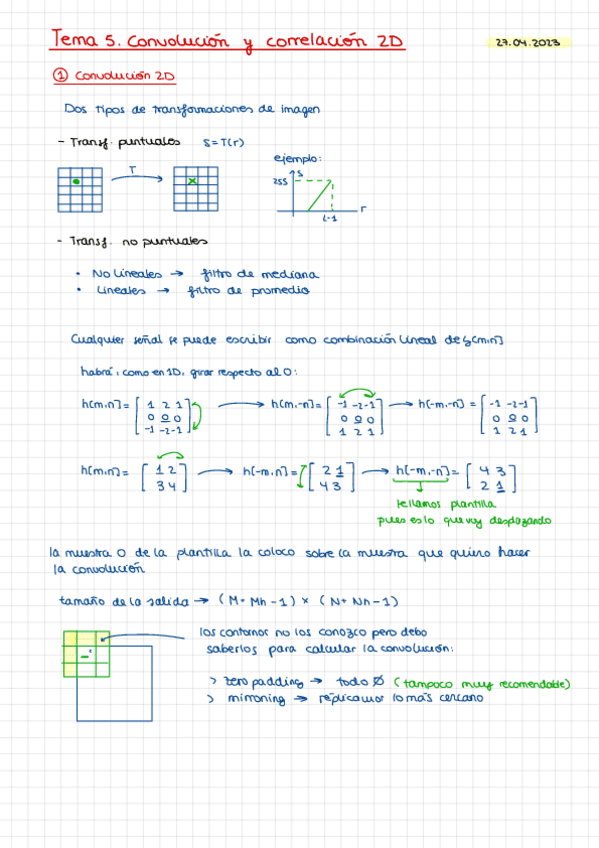 Tema 5. Convolución y correlación 2D
27.04.2023
① Convolución 2D
Dos tipos de transformaciones de imagen
- Transf. puntuales S=T(r)
ejemplo:
T
S
255
r
L-1
- Transf. no puntuales
• No lineales → filtro de mediana
• Lineales → filtro de promedio
Cualquier señal se puede escribir como combinación lineal de δ[m,n]
habrá, como en 1D, girar respecto al 0:
h[m,n]= [ 1 2 1 → h[m,-n]= [ -1 -2 -1 → h[-m,-n] = [ -1 -2 -1
0 0 0 0 0 0 0 0 0
-1 -2 -1 ] 1 2 1 ] 1 2 1 ]
h[m,n]= [ 1 2 → h[-m,n]= [ 2 1 → h[-m,-n]= [ 4 3
3 4 ] 4 3 ] 2 1 ]
le llamos plantilla
pues es lo que voy desplazando
la muestra 0 de la plantilla la coloco sobre la muestra que quiero hacer
la convolución
tamaño de la salida → (M+Mh-1) × (N+Nh-1)
los contornor no los conozco pero debo
saberlos para calcular la convolución:
> zero padding → todo Ø (tampoco muy recomendable)
> mirroning → replicamor lo más cercano